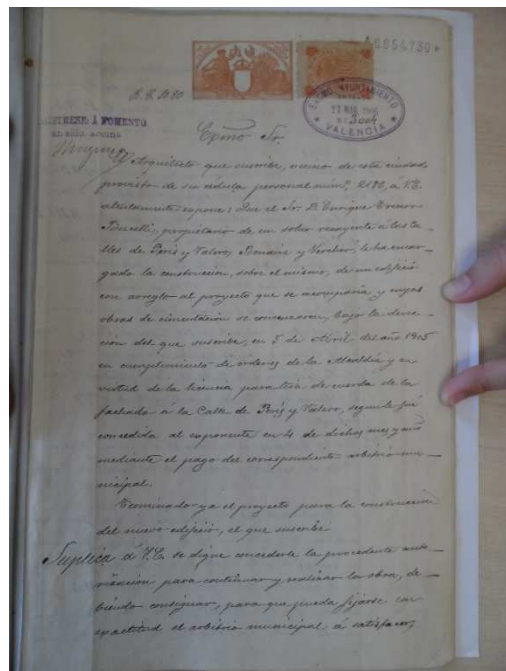 A0.054.730*
EXCMO. AYUNTAMIENTO
ENTRADA
22 MAR 1906
Nº 3004
VALENCIA
Á FOMENTO
Exmo Sr.
El Arquitecto que suscribe, vecino de esta ciudad
provisto de su cédula personal númº 2180, á V.E.
atentamente expone: Que el Sr. D. Enrique
propietario de un solar recayente á las Ca-
lles de Peris y Valero, Bonaire y Verchér, le ha encar-
gado la construcción, sobre el mismo, de un edificio
con arreglo al proyecto que se acompaña y cuyas
obras de cimentación se comenzaron, bajo la direc-
cion del que suscribe, en 5 de Abril del año 1905
en cumplimiento de ordenes de la Alcaldia y en
virtud de la licencia para tira de cuerda de la
fachada á la Calle de Peris y Valero, que le fué
concedida al exponente en 4 de dichos mes y año
mediante el pago del correspondiente arbitrio mu-
nicipal.
Terminado ya el proyecto para la construcción
del nuevo edificio, el que suscribe
Suplica á V.E. se digne concederle la procedente auto-
rización para continuar y realizar la obra, de-
biendo consignar, para que pueda fijarse con
exactitud el arbitrio municipal á satisfacer,